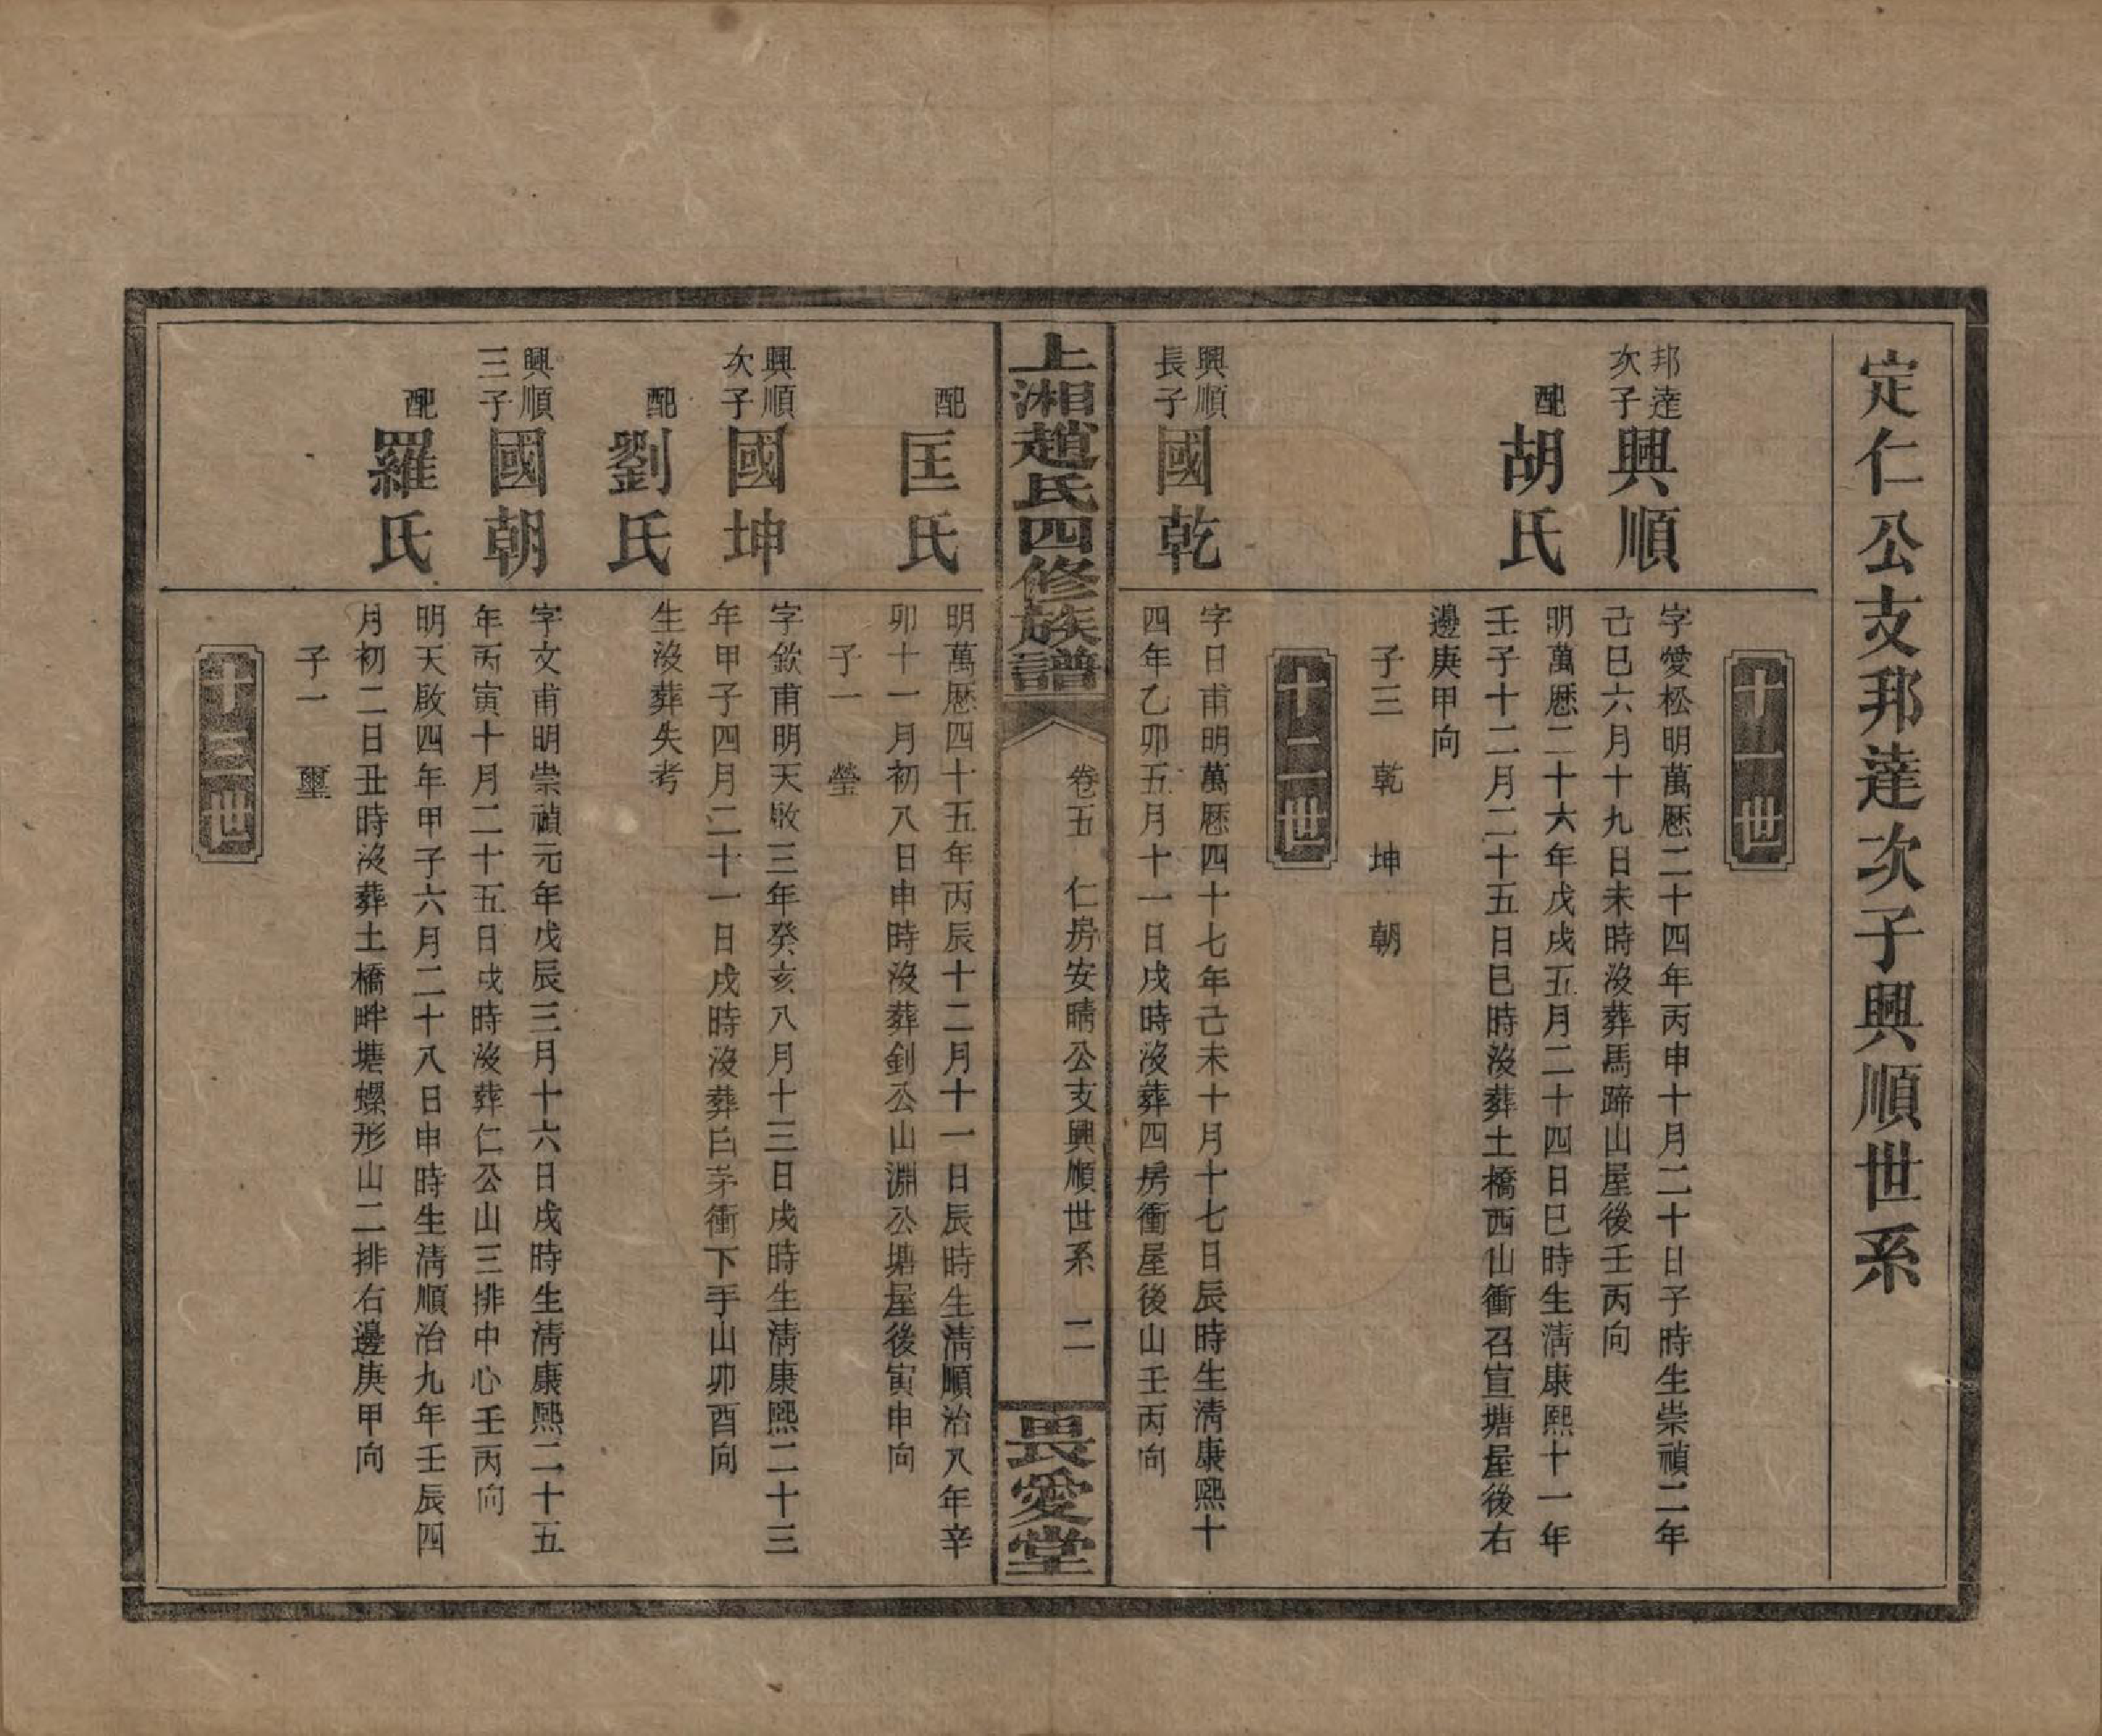 定仁公支邦達次子興順世系
十一世
邦達
次子
興順
字愛松明萬歷二十四年丙申十月二十日子時生崇禎二年
己巳六月十九日未時沒葬馬蹄山屋後壬丙向
配
胡氏
明萬歷二十六年戊戌五月二十四日巳時生淸康熙十一年
壬子十二月二十五日巳時沒葬土橋西山衝召宣塘屋後右
邊庚甲向
子三 乾 坤 朝
十二世
興順
長子
國乾
字日甫明萬歷四十七年己未十月十七日辰時生淸康熙十
四年乙卯五月十一日戌時沒葬四房衝屋後山壬丙向
上湘趙氏四修族譜
卷五 仁房安晴公支興順世系 二
畏愛堂
配
匡氏
明萬歷四十五年丙辰十二月十一日辰時生淸順治八年辛
卯十一月初八日申時沒葬釗公山淵公塘屋後寅申向
子一 瑩
興順
次子
國坤
字欽甫明天啟三年癸亥八月十三日戌時生淸康熙二十三
年甲子四月二十一日戌時沒葬白茅衝下手山卯酉向
配
劉氏
生沒葬失考
興順
三子
國朝
字文甫明崇禎元年戊辰三月十六日戌時生淸康熙二十五
年丙寅十月二十五日戌時沒葬仁公山三排中心壬丙向
配
羅氏
明天啟四年甲子六月二十八日申時生淸順治九年壬辰四
月初二日丑時沒葬土橋畔塘螺形山二排右邊庚甲向
子一 璽
十三世